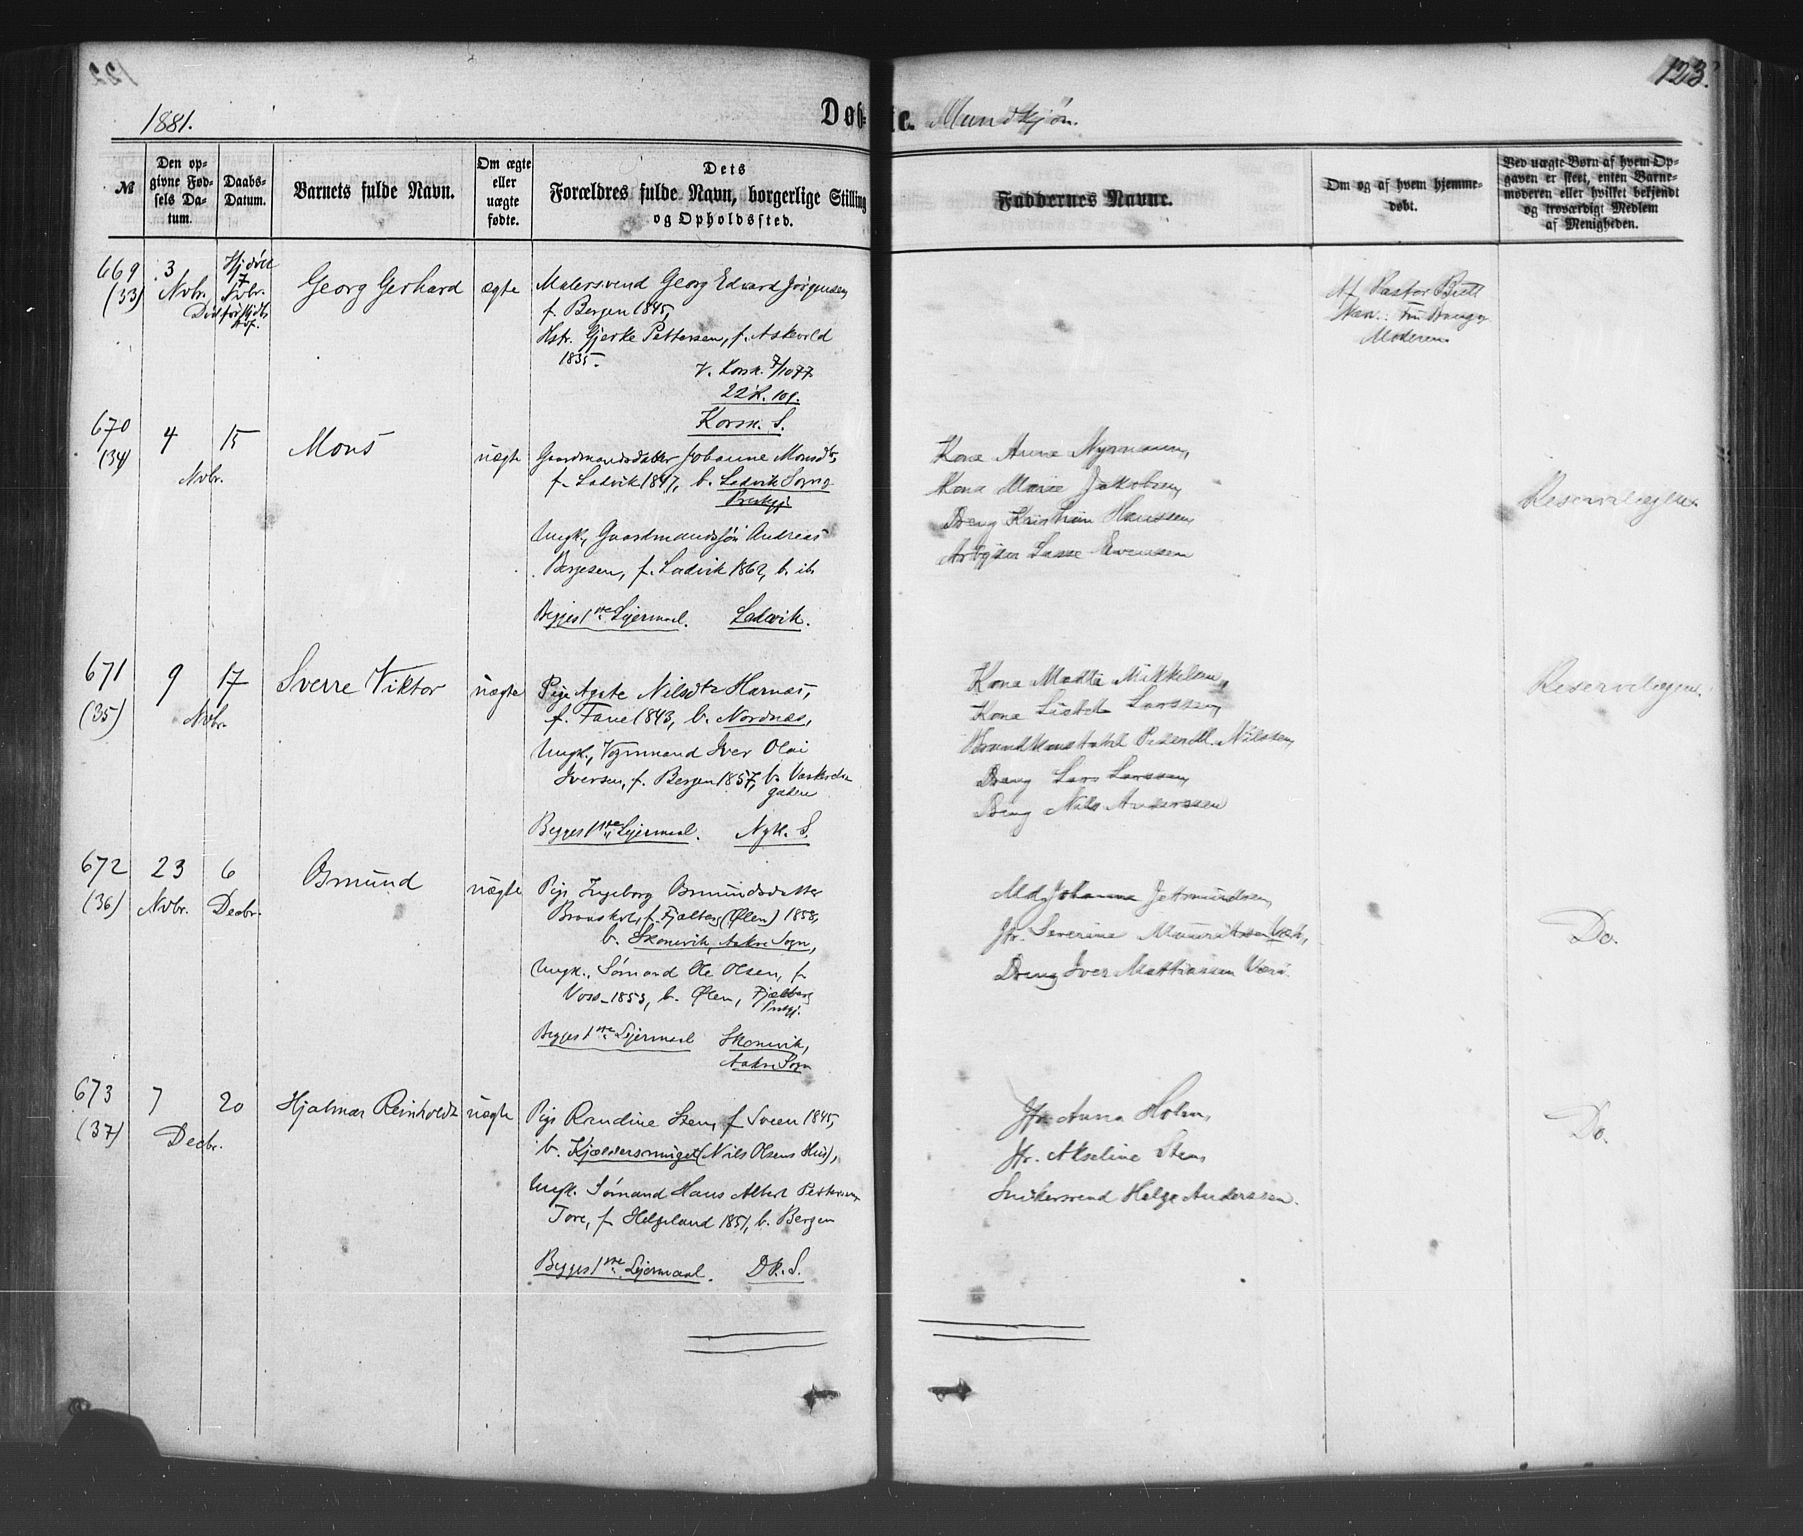 123.
1881.
Døb- te. Mandkjøn.
№
Den opgivne Fødsels Datum.
Daabs-Datum.
Barnets fulde Navn.
Om ægte eller uægte fødte.
Dets Forældres fulde Navn, borgerlige Stilling og Opholdssted.
Faddernes Navne.
Om og af hvem hjemmedøbt.
Ved uægte Børn af hvem Opgaven er skeet, enten Barnemoderen eller hvilket bekjendt og troværdigt Medlem af Menigheden.
669 (33)
3 Novbr.
Hjdøbt 7 Novbr.
Georg Gerhard
ægte
Malersvend Georg Edvard Jørgensen,
f. Bergen 1845,
Hstr. Gjerke Pettersen, f. Askvold
1835.
V. Korsk. 7/10 77.
22 K. 109.
Korsk. S.
Af Pastor
Moderen
670 (34)
4 15 Novbr.
Mons
uægte
Gaardmandsdatter Johanne Monsdtr,
f. Ladvik 1847, b. Ladvik Sogn
Prestgj.
Ungk., Gaardmandssøn Andreas
Børgesen, f. Ladvik 1862, b. ib
Begges 1ste Lejermaal. Ladvik.
Kone Anna Nyrmann,
Kone Marie Jakobsen,
Dreng Kristian Hanssen,
Arbejder Lasse
671 (35)
9 17 Novbr.
Sverre Viktor
uægte
Pige Agate Nilsdtr Harnæs,
f. Fane 1843, b. Nordnæs,
Ungk., Vognmand Iver Olai
Iversen, f. Bergen 1857, b. Vaskerelvgaden
Begges 1ste Lejermaal. Nyk. S.
Kone Mikkelsen,
Kone Larssen,
Nilssen,
Dreng Lars Larssen,
Dreng Nils Anderssen
672 (36)
23 Novbr.
6 Decbr.
Osmund
uægte
Pige Ingeborg Osmundsdatter
f. Fjelberg (Ølen) 1858,
b. Skonevik, Aakre Sogn,
Ungk., Sømand Ole Olsen, f.
Voss 1853, b. Ølen, Fjelberg
Prstgj.
Begges 1ste Lejermaal Skonevik,
Aakre Sogn
Md. Johanna Jetmundsen,
Jfr. Severine
Dreng Iver Mathiassen
Do.
673 (37)
7 20 Decbr.
Hjalmar Reinholdt
uægte
Pige Randine Sten, f. Sveen 1845,
b. Kjeldersmuget (Nils Olsens Hus),
Ungk. Sømand Hans Albert Pettersen
Tore, f. Helgeland 1851, b. Bergen
Begges 1ste Lejermaal. DK. S.
Jfr. Anna Holm,
Jfr. Akseline Sten,
Snikersvend Helge Anderssen.
Do.